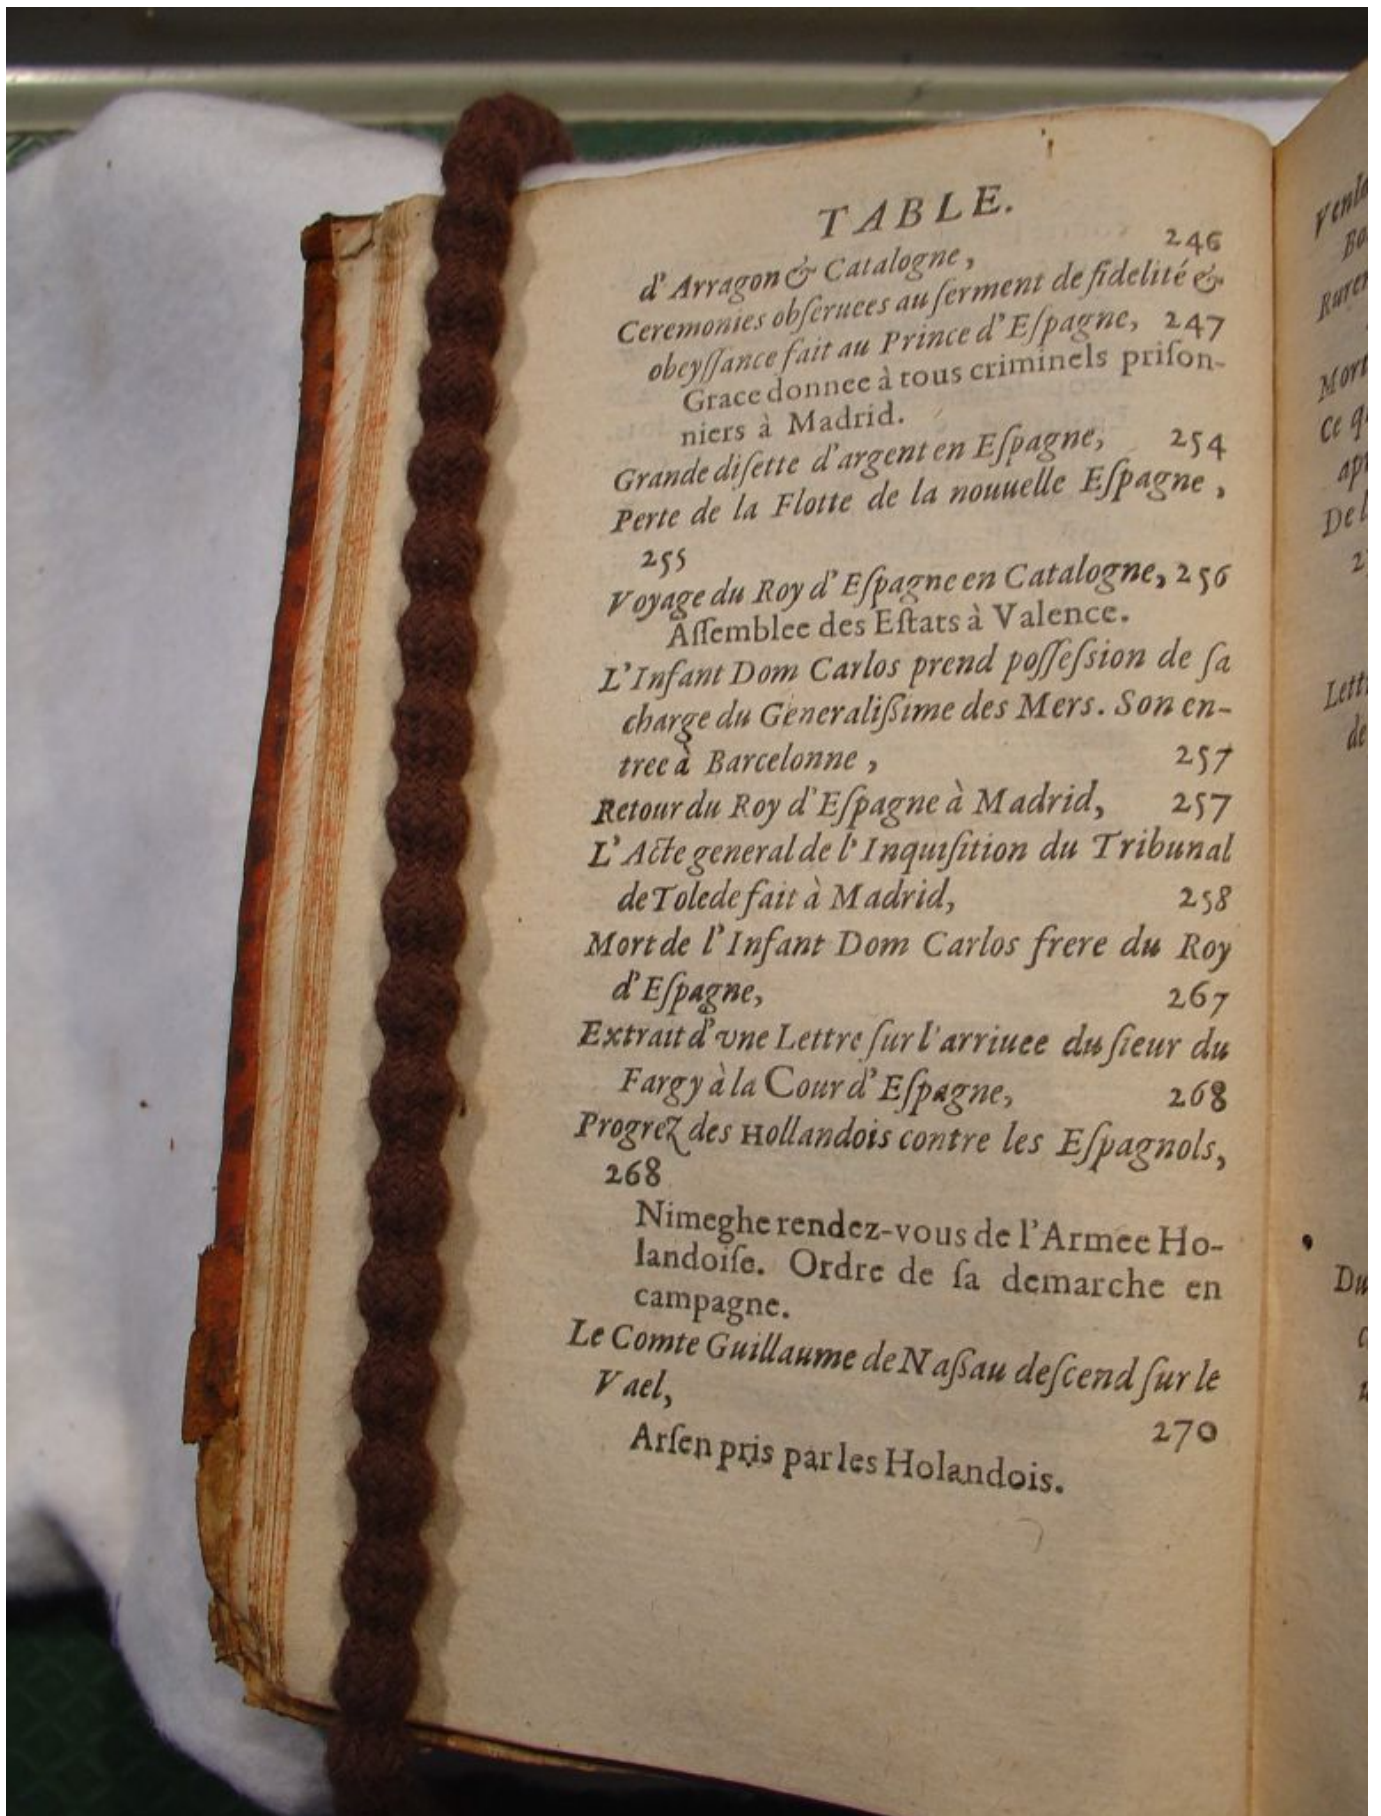 TABLE.
d'Arragon & Catalogne, 246
Ceremonies obſeruees au ſerment de fidelité &
obeyſſance fait au Prince d'Eſpagne, 247
Grace donnee à tous criminels priſon-
niers à Madrid.
Grande diſette d'argent en Eſpagne, 254
Perte de la Flotte de la nouuelle Eſpagne,
255
Voyage du Roy d'Eſpagne en Catalogne, 256
Aſſemblee des Eſtats à Valence.
L'Infant Dom Carlos prend poſſeſsion de ſa
charge du Generaliſsime des Mers. Son en-
tree à Barcelonne, 257
Retour du Roy d'Eſpagne à Madrid, 257
L'Acte general de l'Inquiſition du Tribunal
de Tolede fait à Madrid, 258
Mort de l'Infant Dom Carlos frere du Roy
d'Eſpagne, 267
Extrait d'vne Lettre ſur l'arriuee du ſieur du
Fargy à la Cour d'Eſpagne, 268
Progrez des Hollandois contre les Eſpagnols,
268
Nimeghe rendez-vous de l'Armee Ho-
landoiſe. Ordre de ſa demarche en
campagne.
Le Comte Guillaume de Naſsau deſcend ſur le
Vael, 270
Arſen pris par les Holandois.
Mort
Ce
De
Du